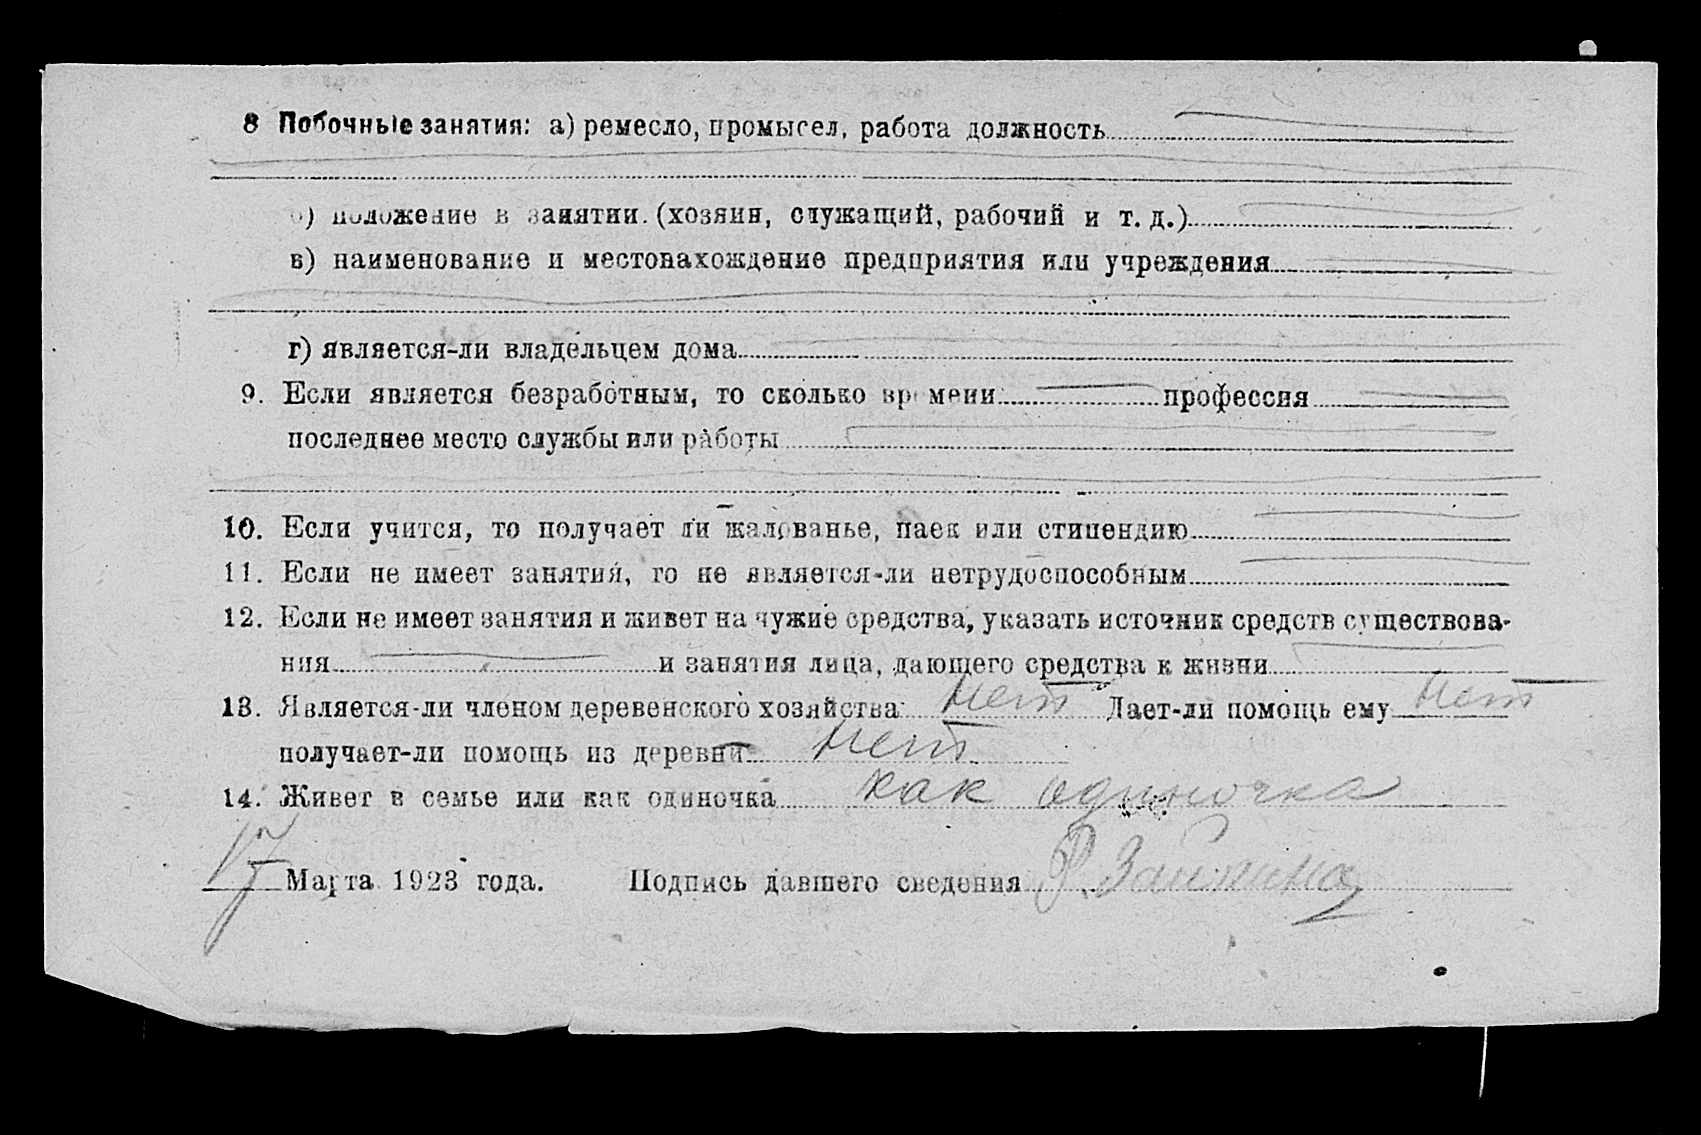 8 Побочные занятия: а) ремесло, промысел, работа должность
б) положение в занятии. (хозяин, служащий, рабочий и т. д.)
в) наименование и местонахождение предприятия или учреждения
г) является-ли владельцем дома
9. Если является безработным, то сколько времени профессия
последнее место службы или работы
10. Если учится, то получает ли жалованье, паек или стипендию
11. Если не имеет занятия, то не является-ли нетрудоспособным
12. Если не имеет занятия и живет на чужие средства, указать источник средств существова-
ния и занятия лица, дающего средства к жизни
13. Является-ли членом деревенского хозяйства нет Дает-ли помощь ему нет
получает-ли помощь из деревни нет
14. Живет в семье или как одиночка как одиночка
17 Марта 1923 года. Подпись давшего сведения Р.